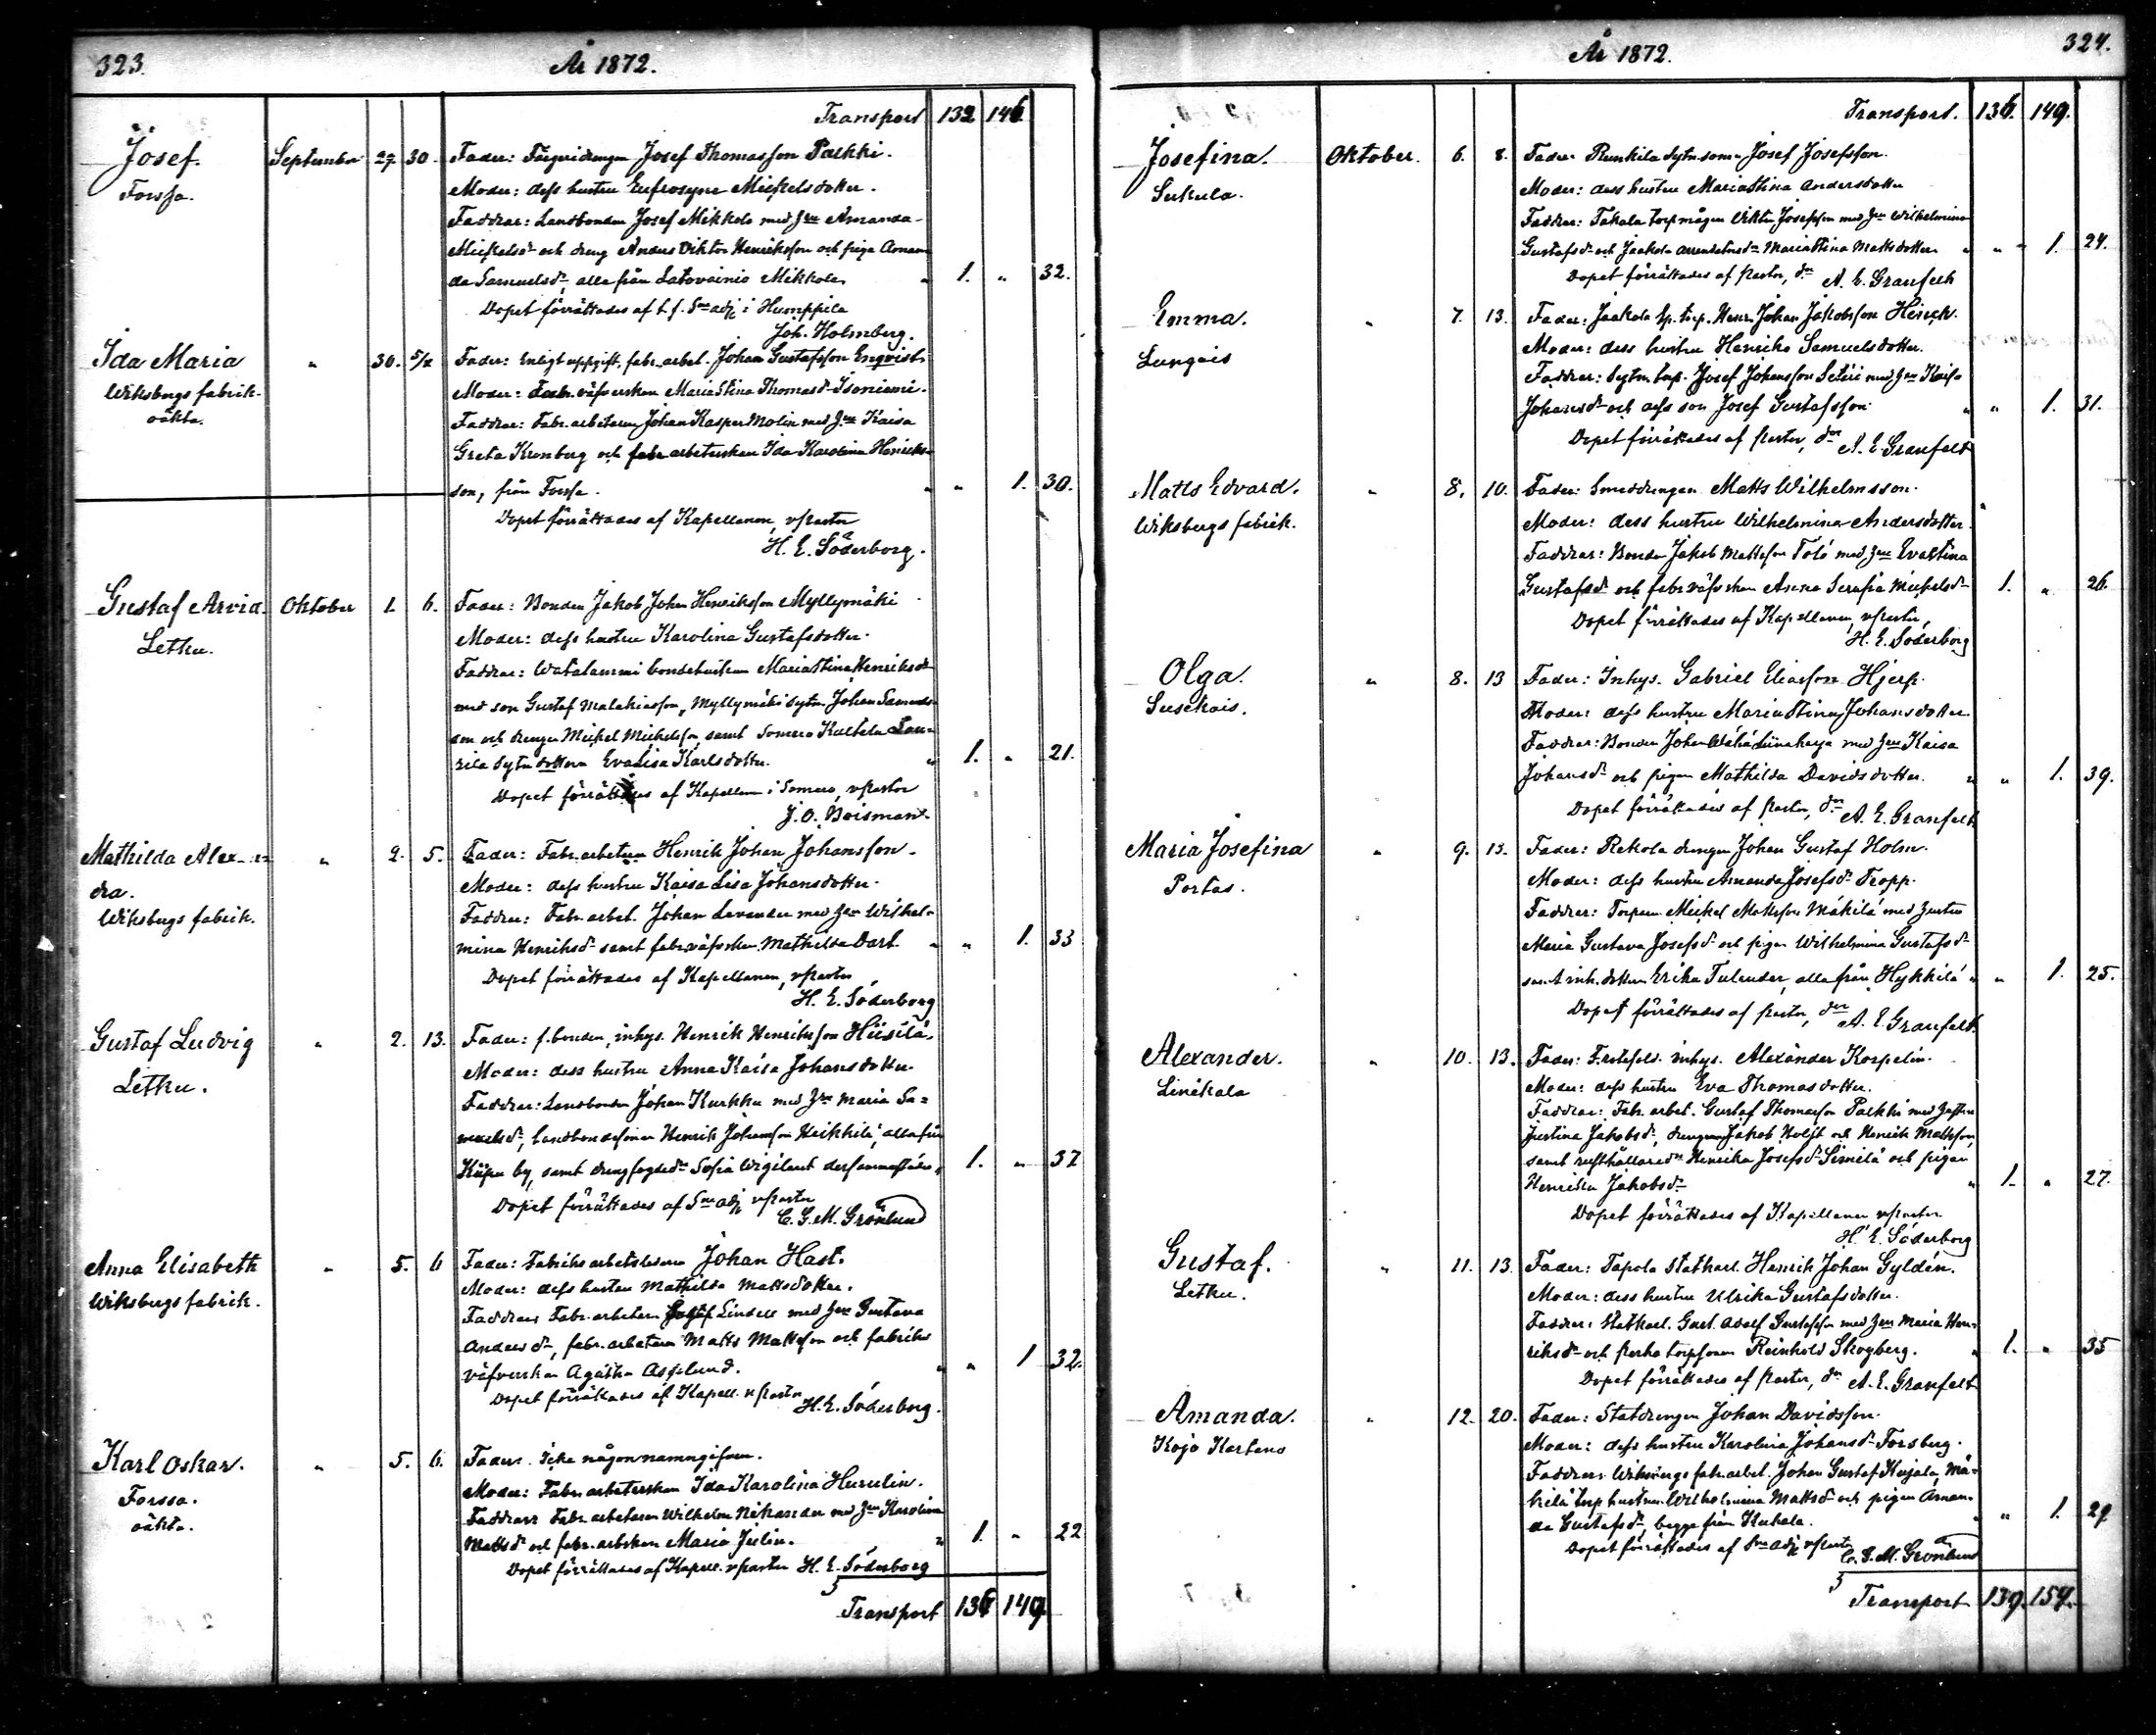 323.
År 1872.
Transport 132 146
Josef. September 29. 30. Fader: Färgeridrengen Josef Thomasson Palkki.
Forssa. Moder: dess hustru Eufrosyne Mickelsdotter.
Faddrar: Landbonden Josef Mikkola med Hru Amanda
Mickelsdr och dreng Anders Viktor Henriksson och piga Aman-
da Samuelsdr, alla från Latovainio Mikkola " 1. " 32.
Dopet förrättades af t.f. Sneadj. i Humppila
Joh. Holmberg.
Ida Maria " 30. 5/X Fader: Enligt uppgift, fabr. arbet. Johan Gustafsson Enqvist
Wiksbergs fabrik. Moder: Fabr. väfverskan Maria Stina Thomasdr Isoniemi.
oäkta. Faddrar: Fabr. arbetaren Johan Kasper Molin med Hru Kaisa
Greta Kronberg och fabr arbeterskan Ida Karolina Henriks-
son, från Forssa. " " 1. 30.
Dopet förrättades af Kapellanen, vPastor
H. E. Söderborg.
Gustaf Arvid. Oktober 1. 6. Fader: Bonden Jakob Johan Henriksson Myllymäki
Letku. Moder: dess hustru Karolina Gustafsdotter.
Faddrar: Watalammi bondehustrun Maria Stina Henriksdr
med son Gustaf Malakiasson, Myllymäki sytn. Johan Samuels-
son och drengen Mickel Mickelsson samt Somero Kultela Lau-
rila sytn dottern Eva Lisa Karlsdotter. " 1. " 21.
Dopet förrättades af Kapellan i Somero, vPastor
J. O. Boisman.
Mathilda Alexan- " 2. 5. Fader: Fabr. arbetaren Henrik Johan Johansson.
dra. Moder: dess hustru Kaisa Lisa Johansdotter.
Wiksbergs fabrik. Faddrar: Fabr. arbet. Johan Lavander med Hru Wilhel-
mina Henriksdr samt fabr. väfverskan Mathilda Darl. " " 1. 33
Dopet förrättades af Kapellanen, vPastor
H. E. Söderborg
Gustaf Ludvig " 2. 13. Fader: f. bonden, inhys. Henrik Henriksson Hiisilä.
Letku. Moder: dess hustru Anna Kaisa Johansdotter.
Faddrar: Landbonden Johan Kurkku med Hru Maria Sa-
muelsdr, landbondesonen Henrik Johansson Heikkilä, alla från
by, samt drengfogdedr Sofia Wigilant dersammastädes, 1. " 37
Dopet förrättades af Sneadj. vPastor
C. G. M. Grönlund
Anna Elisabeth " 5. 6 Fader: Fabriks arbetaren Johan Hast.
Wiksbergs fabrik. Moder: dess hustru Mathilda Mattsdotter.
Faddrar: Fabr. arbetaren Josef Lindell med Hru Gustava
Andersdr, fabr. arbetaren Matts Mattsson och fabriks
väfverskan Agatha Asplund. " " 1 32.
Dopet förrättades af Kapell. vPastor
H. E. Söderborg.
Karl Oskar. " 5. 6. Fader: Icke någon namngifven.
Forssa. Moder: Fabr. arbeterskan Ida Karolina Hurulin.
oäkta. Faddrar: Fabr. arbetaren Wilhelm Nikander med Hru Karolina
Mattsdr och fabr. arbskan Maria Julin. " 1. " 22
Dopet förrättades af Kapell. vPastor H. E. Söderborg
Transport 136 149.
324.
År 1872.
Transport. 136. 149.
Josefina. Oktober. 6. 8. Fader: sytn. sonen Josef Josefsson.
Sukula. Moder: dess hustru Maria Stina Andersdotter
Faddrar: Takala torpmågen Viktor Josefsson med Hru Wilhelmina
Gustafsdr och Jaakola arrendatorsdr Maria Stina Mattsdotter " " 1. 24.
Dopet förrättades af Pastor, dr A. E. Granfelt
Emma. " 7. 13. Fader: Jaakola sp. torp. Henr. Johan Jakobsson Heinch.
Lungois Moder: dess hustru Henrika Samuelsdotter.
Faddrar: Sytn. torp. Josef Johansson Seteri med Hru Kaisa
Johansdr och dess son Josef Gustafsson. " " 1. 31.
Dopet förrättades af Pastor, dr A. E. Granfelt
Matts Edvard. " 8. 10. Fader: Smeddrengen Matts Wilhelmsson.
Wiksbergs fabrik. Moder: dess hustru Wilhelmina Andersdotter
Faddrar: Bonden Jakob Mattsson Tolo med Hru Eva Stina
Gustafsdr och fabr. väfverskan Anna Serafia Mickelsdr 1. " 26.
Dopet förrättades af Kapellanen, vPastor,
H. E. Söderborg
Olga. " 8. 13 Fader: Inhys. Gabriel Eliasson Hjerp.
Suskais. Moder: dess hustru Maria Stina Johansdotter.
Faddrar: Bonden Johan Wähä Liinaharja med Hru Kaisa
Johansdr och pigan Mathilda Davidsdotter. " " 1. 39.
Dopet förrättades af Pastor, dr A. E. Granfelt
Maria Josefina " 9. 13. Fader: Rekola drengen Johan Gustaf Holm.
Portas. Moder: dess hustru Amanda Josefsdr Tropp.
Faddrar: Torparen Mickel Mattsson Mäkilä med hustru
Maria Gustava Josefsdr och pigan Wilhelmina Gustafsdr
samt inh. dottern Erika Tulander, alla från Hykkilä " " 1. 25.
Dopet förrättades af Pastor, dr A. E. Granfelt
Alexander. " 10. 13. Fader: Frotefeld. inhys. Alexander Korpelin.
Linikala Moder: dess hustru Eva Thomasdotter.
Faddrar: Fabr. arbet. Gustaf Thomasson Palkki med hustru
Justina Jakobsdr, drengarne Jakob Holst och Henrik Mattsson,
samt rusthållaredr Henrika Josefsdr Simila och pigan
Henrika Jakobsdr " 1. " 27.
Dopet förrättades af Kapellanen vPastor
H. E. Söderborg
Gustaf. " 11. 13. Fader: Tapola Statkarl. Henrik Johan Gyldén.
Letku. Moder: dess hustru Ulrika Gustafsdotter.
Faddrar: Statkarl. Gust. Adolf Gustafsson med Hru Maria Hen-
riksdr och Perho torpsonen Reinhold Skogberg. " 1. " 35
Dopet förrättades af Pastor, dr A. E. Granfelt
Amanda. " 12. 20. Fader: Statdrengen Johan Davidsson.
Kojo Kartano Moder: dess hustru Karolina Johansdr Forsberg.
Faddrar: Wiksbergs fabr. arbet. Johan Gustaf Kujala, Mä-
kilä torp hustrun Wilhelmina Mattsdr och pigan Aman-
da Gustafsdr, begge från Kuhala. " " 1. 29
Dopet förrättades af Sneadj. vPastor
C. G. M. Grönlund
Transport 139. 154.